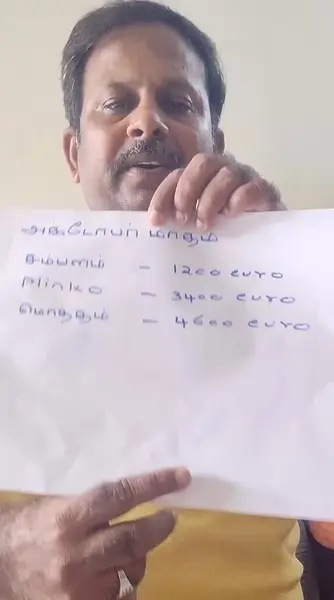 அக்டோபர் மாதம்
சம்பளம் - 1200 euro
Plinko - 3400 euro
மொத்தம் - 4600 euro